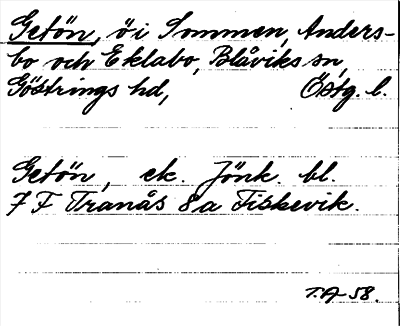 Getön, ö i Sommen, Anders-
bo och Eklabo, Blåviks sn,
Göstrings hd, Östg. l.
Getön, ek. Jönk. bl.
7 F Tranås 8 a Fiskevik.
T.A-58.